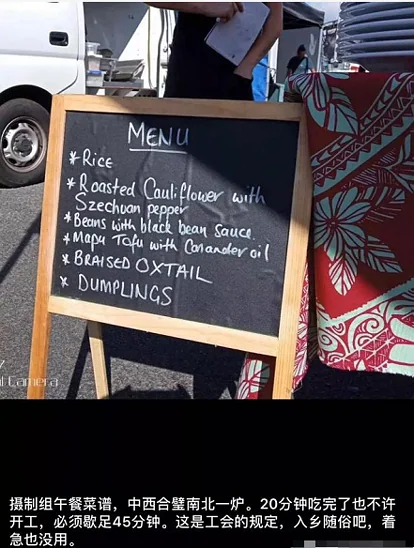 MENU
* RICE
* Roasted Cauliflower with
Szechuan pepper
* Beans with black bean sauce.
* Mapu Tofu with Coriander oil
* BRAISED OXTAIL
* DUMPLINGS
Camera
摄制组午餐菜谱，中西合璧南北一炉。20分钟吃完了也不许
开工，必须歇足45分钟。这是工会的规定，入乡随俗吧，着
急也没用。